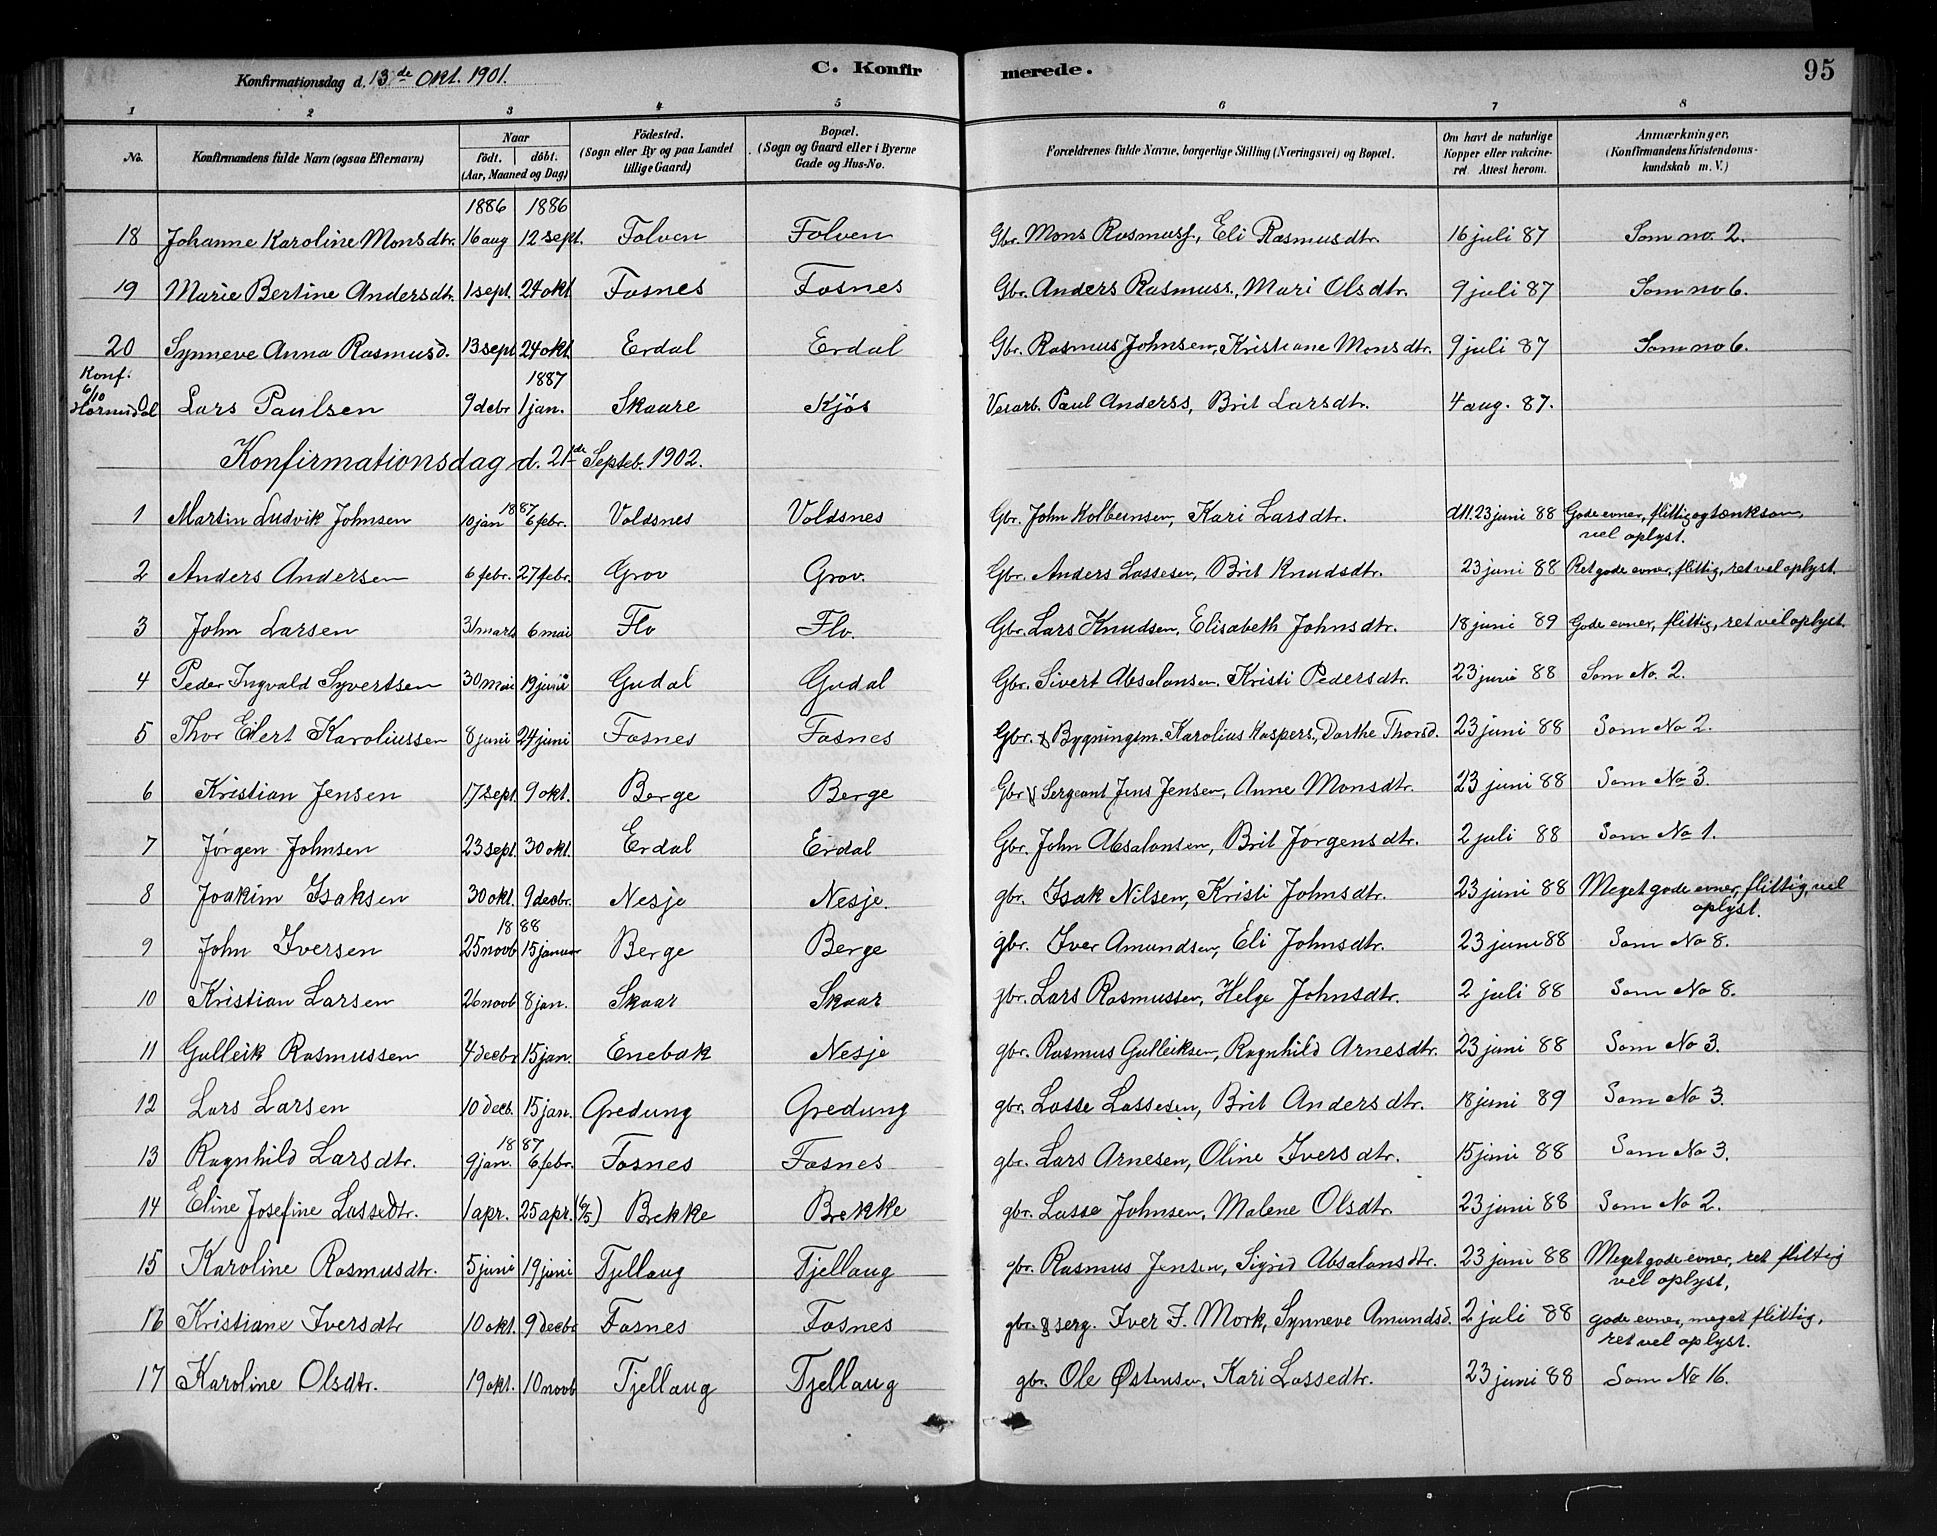 Konfirmationsdag d. 13de Okt. 1901. C. Konfirmerede. 95
1 2 3 4 5 6 7 8
No. Konfirmandens fulde Navn (ogsaa Efternavn) Naar født. døbt. (Aar, Maaned og Dag) Födested. (Sogn eller By og paa Landet tillige Gaard) Bopæl. (Sogn og Gaard eller i Byerne Gade og Hus-No. Forældrenes fulde Navne, borgerlige Stilling (Næringsvei) og Bopæl. Om havt de naturlige Kopper eller vakcineret. Attest herom. Anmærkninger, (Konfirmandens Kristendomskundskab m. V.)
1886 1886
18 Johanne Karoline Monsdtr. 16 aug 12 sept. Folven Folven Gbr. Mons Rasmuss., Eli Rasmusdtr. 16 juli 87 Som no. 2.
19 Marie Bertine Andersdtr. 1 sept. 24 okt Fosnes Fosnes Gbr. Anders Rasmuss., Mari Olsdtr. 9 juli 87 Som no 6.
20 Synneve Anna Rasmusd. 13 sept 24 okt. Erdal Erdal Gbr. Rasmus Johnsen, Kristiane Monsdtr. 9 juli 87 Som no 6.
Konf. 6/10 Hornindal 1887
Lars Paulsen 9 debr 1 jan. Skaare Kjøs Verarb. Paul Anderss, Brit Larsdtr. 4 aug. 87.
Konfirmationsdag d. 21de Septeb. 1902.
1887
1 Martin Ludvik Johnsen 10 jan 6 febr. Voldsnes Voldsnes Gbr. John Kolbeinsen, Kari Larsdtr. 23 juni 88 Gode evner, flittig og tænksom, vel oplyst.
2 Anders Andersen 6 febr. 27 febr. Grov Grov. Gbr. Anders Lassesen, Brit Knudsdtr. 23 juni 88 Ret gode evner, flittig, ret vel oplyst.
3 John Larsen 31 marts 6 mai Flo Flo. Gbr. Lars Knudsen, Elisabeth Johnsdtr. 18 juni 89 Gode evner, flittig, ret vel oplyst.
4 Peder Ingvald Syvertsen 30 mai 19 juni Gudal Gudal Gbr. Sivert Absalonsen. Kristi Pedersdtr. 23 juni 88 Som No. 2.
5 Thor Eilert Karoliussen 8 juni 24 juni Fosnes Fosnes Gbr. & Bygningsm. Karolius Kaspers., Dorthe Thorsd. 23 juni 88 Som No 2.
6 Kristian Jensen 17 sept. 9 okt. Berge Berge Gbr & Sergeant Jens Jensen, Anne Monsdtr. 23 juni 88 Som No 3.
7 Jørgen Johnsen 23 sept. 30 okt. Erdal Erdal Gbr. John Absalonsen, Brit Jørgensdtr. 2 juli 88 Som No 1.
8 Joakim Isaksen 30 okt. 9 decbr. Nesje Nesje. gbr. Isak Nilsen, Kristi Johnsdtr. 23 juni 88 Meget gode evner, flittig, vel oplyst.
1888
9 John Iversen 25 novb 15 januar Berge Berge gbr. Iver Amundsen, Eli Johnsdtr. 23 juni 88 Som No 8.
10 Kristian Larsen 26 novb 8 jan. Skaar Skaar gbr. Lars Rasmussen, Helge Johnsdtr. 2 juli 88 Som No 8.
11 Gulleik Rasmussen 4 decbr 15 jan. Enebak Nesje gbr. Rasmus Gulleiksen, Ragnhild Arnesdtr. 23 juni 88 Som No 3.
12 Lars Larsen 10 decb. 15 jan. Gredung Gredung gbr. Lasse Lassesen, Brit Andersdtr. 18 juni 89 Som No 3.
1887
13 Ragnhild Larsdtr. 9 jan. 6 febr. Fosnes Fosnes gbr. Lars Arnesen, Oline Iversdtr. 15 juni 88 Som No 3.
14 Eline Josefine Lassedtr. 1 apr. 25 apr. Bekke Brekke gbr. Lasse Johnsen, Malene Olsdtr. 23 juni 88 Som No 2.
15 Karoline Rasmusdtr. 5 juni 19 juni Tjellaug Tjellaug gbr. Rasmus Jensen, Sigrid Absalonsdtr. 23 juni 88 Meget gode evner, ret flittig vel oplyst,
16 Kristiane Iversdtr 10 okt. 9 decbr Fosnes Fosnes gbr. & serg. Iver J. Mork, Synneve Amundsd. 2 juli 88 gode evner, meget flittig, ret vel oplyst.
17 Karoline Olsdtr. 19 okt. 10 novb Tjellaug Tjellaug gbr. Ole Østensen, Kari Lassedtr. 23 juni 88 Som No 16.